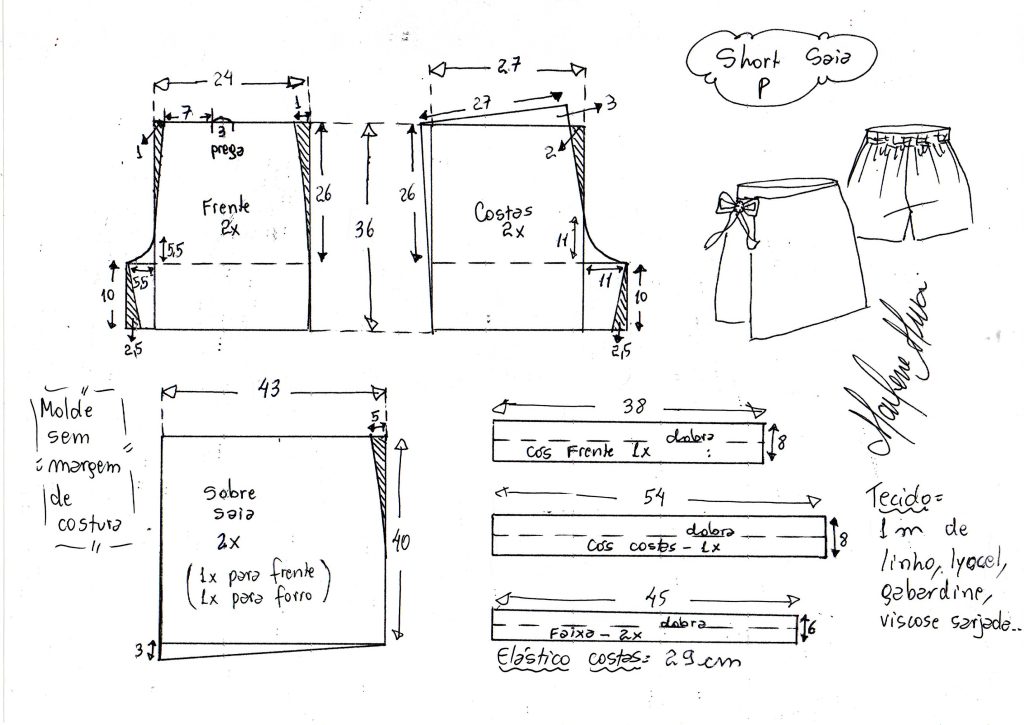 Short Saia
P
24
7
1
3
prega
1
26
Frente
2x
5,5
5,5
10
2,5
36
27
27
3
2
26
Costas
2x
11
11
10
2,5
Marlene Mukai
Molde
sem
margem
de
costura
43
5
Sobre
saia
2x
(1x para frente
1x para forro)
40
3
38
dobra
Cós Frente 1x
8
54
dobra
Cós costas - 1x
8
45
dobra
Faixa - 2x
6
Elástico costas = 29 cm
Tecido =
1 m de
linho, lyocel,
gabardine,
viscose sarjada...